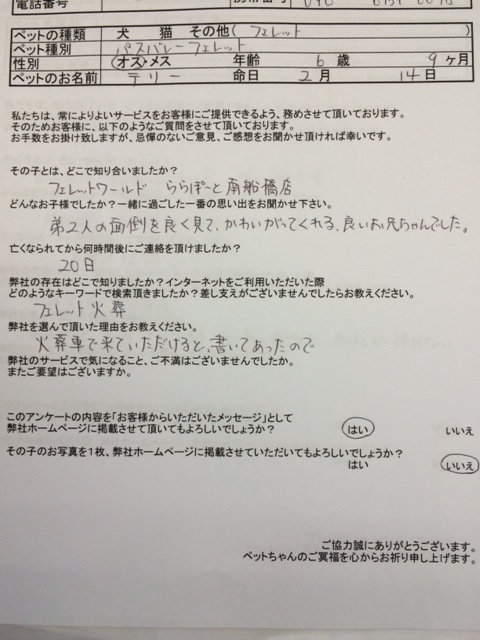 電話番号 携帯番号
ペットの種類 犬 猫 その他(フェレット)
ペット種別 パスバレーフェレット
性別 オス・メス 年齢 6 歳 9 ヶ月
ペットのお名前 テリー 命日 2 月 14 日
私たちは、常によりよいサービスをお客様にご提供できるよう、務めさせて頂いております。
そのためお客様に、以下のようなご質問をさせて頂いております。
お手数をお掛け致しますが、忌憚のないご意見、ご感想をお聞かせ頂ければ幸いです。
その子とは、どこで知り合いましたか?
フェレットワールド ららぽーと南船橋店
どんなお子様でしたか?一緒に過ごした一番の思い出をお聞かせ下さい。
弟2人の面倒を良く見て、かわいがってくれる、良いお兄ちゃんでした。
亡くなられてから何時間後にご連絡を頂けましたか?
20日
弊社の存在はどこで知りましたか?インターネットをご利用いただいた際
どのようなキーワードで検索頂きましたか?差し支えがございませんでしたらお教えください。
フェレット火葬
弊社を選んで頂いた理由をお教えください。
火葬車で来ていただけると、書いてあったので
弊社のサービスで気になること、ご不満はございませんでしたか。
またご要望はございますか。
このアンケートの内容を「お客様からいただいたメッセージ」として
弊社ホームページに掲載させて頂いてもよろしいでしょうか? はい いいえ
その子のお写真を1枚、弊社ホームページに掲載させていただいてもよろしいでしょうか?
はい いいえ
ご協力誠にありがとうございます。
ペットちゃんのご冥福を心からお祈り申し上げます。